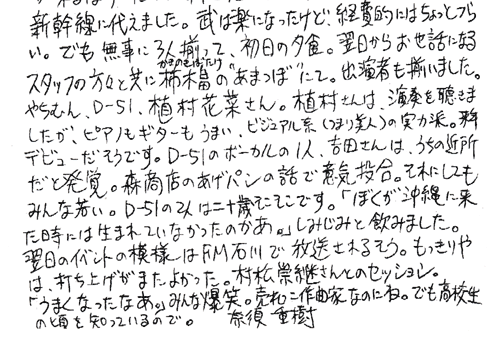 新幹線に代えました。武は楽になったけど、経費的にはちょっとつら
い。でも無事に3人揃って、初日の夕食。翌日からお世話になる
スタッフの方々と共に柿木畠の"あまつぼ"にて。出演者も揃いました。
かきのきばたけ
やちむん、D-51、植村花菜さん。植村さんは、演奏を聴きま
したが、ピアノもギターもうまい、ビジュアル系(つまり美人)の実力派。
デビューだそうです。D-51のボーカルの1人、吉田さんは、うちの近所
だと発覚。森商店のあげパンの話で意気投合。それにしても
みんな若い。D-51の2人は二十歳そこそこです。「ぼくが沖縄に来
た時には生まれていなかったのかあ。」しみじみと飲みました。
翌日のイベントの模様はFM石川で放送されるそう。もっきりや
は、打ち上げがまたよかった。村松崇継さんとのセッション。
「うまくなったなあ。」みんな爆笑。売れっ二作曲家なのにね。でも高校生
の頃を知っているので。 奈須重樹